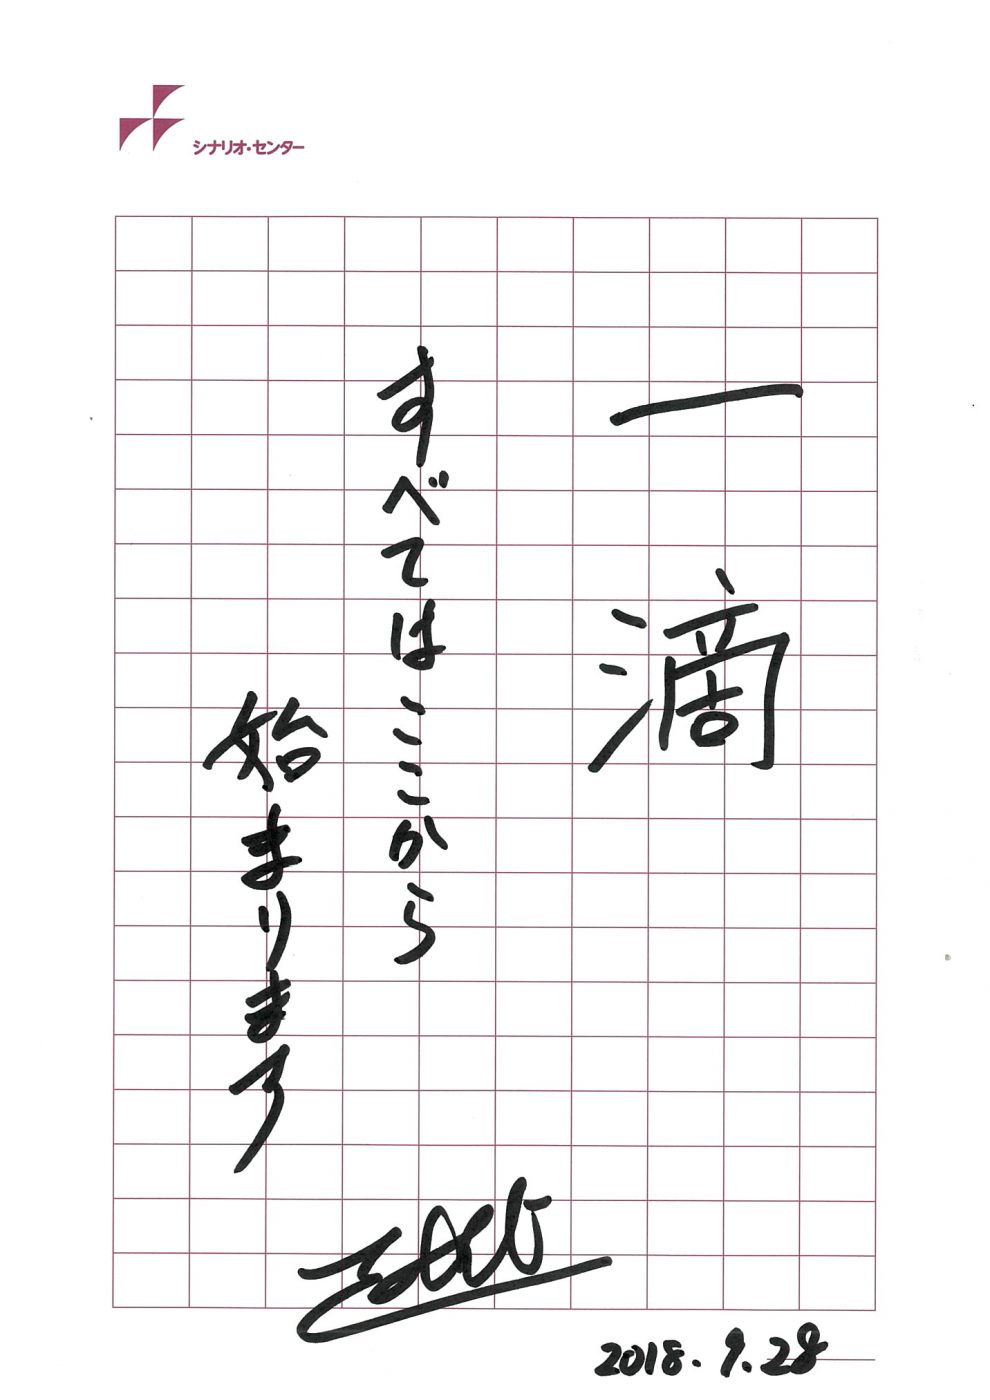 シナリオ・センター
一滴
すべてはここから
始まります
2018.9.28